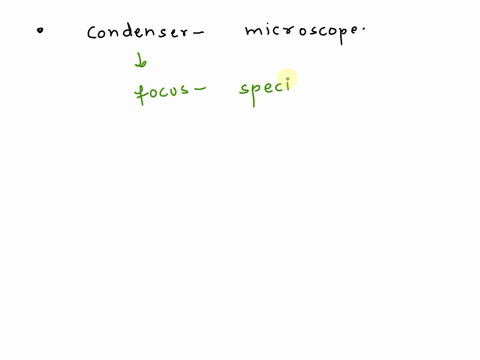 • condenser - microscope.
↓
focus - speci